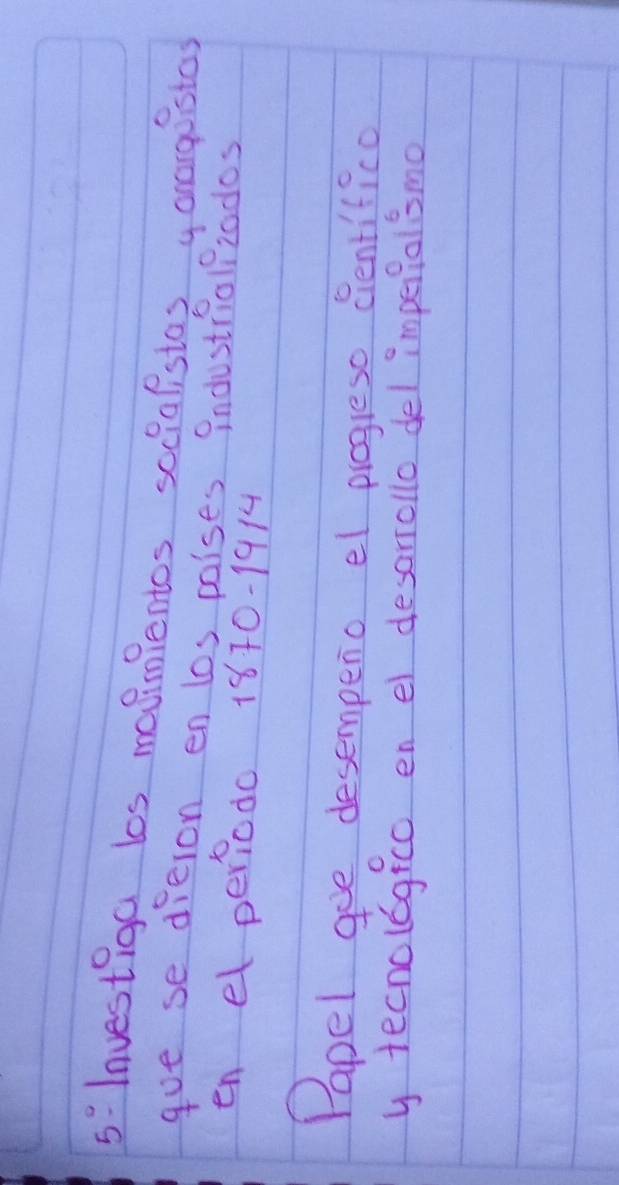 5: Investiga los movimientos socialistas y anarquistas
que se dieron en los países industrializados
en el periodo 1870-1914
Papel que desempeño el progreso científico
y tecnológico en el desarrollo del imperialismo